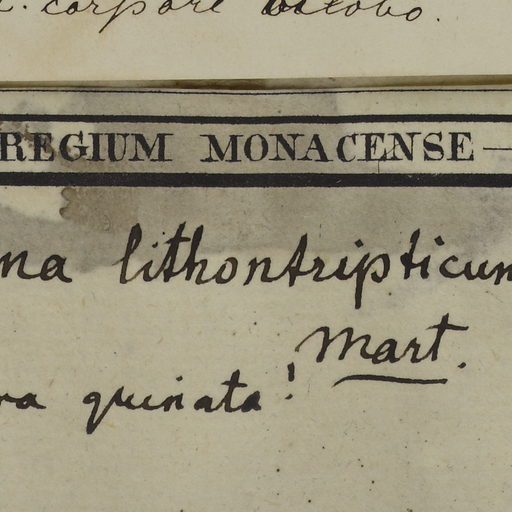 corpore bilobo.
REGIUM MONACENSE —
na lithontripticum
Mart.
va quinata!